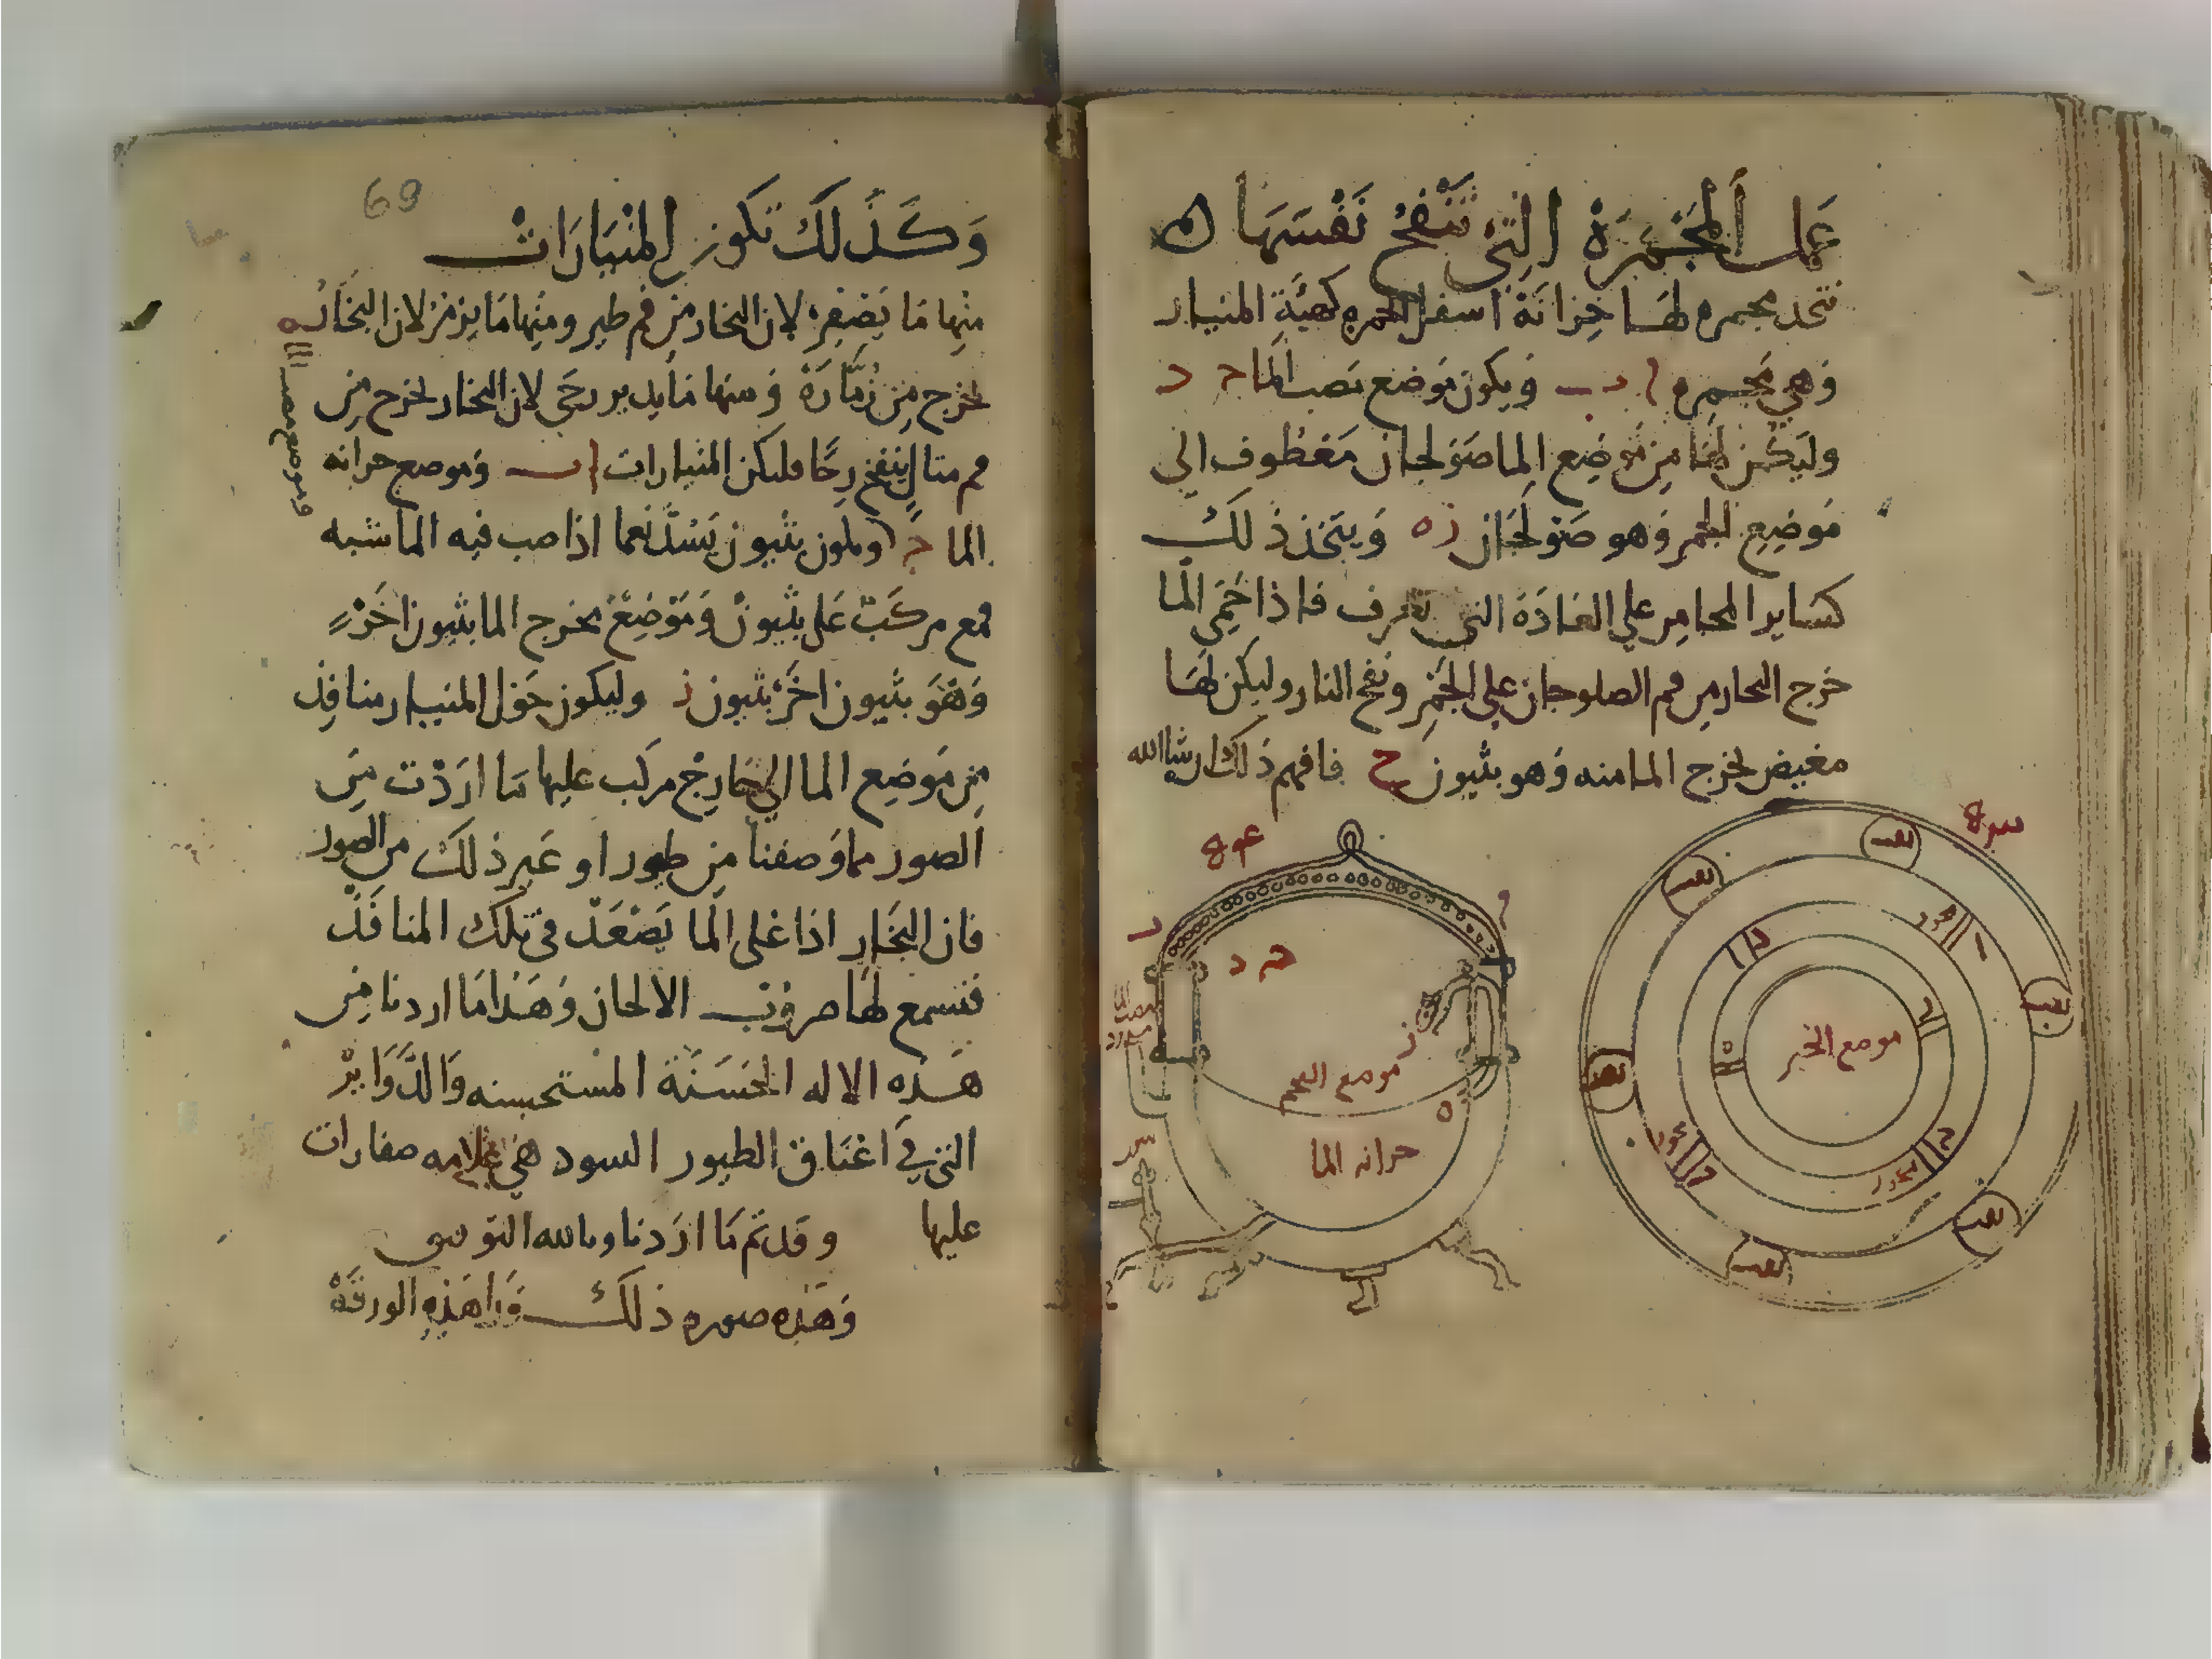 عمل المجمرة التي تنفخ نفسها
تتخد مجمره لها خزانة اسفل الجمره كهيئة المنيار
وهي مجمره ا ب ويكون موضع نصب الما ح د
وليكن لها من موضع الما صولجان معطوف الي
موضع الجمر وهو صولجان زه ويتخذ ذلك
كساير المجامر علي العادة التي تعرف فاذا حمي الما
خرج البخار من فم الصلوجان علي الجمر ونفخ النار وليكن لها
مغيض لخرج الما منه وهو بثيون ح فافهم ذلك ان شا الله
د
ح د
ز
موضع الفحم
ه
خزانه الما
ثقب
ثقب
ثقب
ثقب
ثقب
ثقب
ثقب
موضع الجمر
69
وكذلك تكون المنيارات
منها ما يصفر لان البخار من فم طير ومنها ما يزمر لان البخار
يخرج من زمارة ومنها ما يدير رحي لان البخار يخرج من
فم مثال ينفخ رحا فليكن المنيارات ا ب وموضع خزانه
الما ح وليكون بثيون يسد نعما اذا صب فيه الما شبه
قمع مركب علي بثيون وموضع مخرج الما بثيون اخر
وهو بثيون اخر بثيون ز وليكون حول المنيار منافذ
من موضع الما الي خارج مركب عليها ما اردت من
الصور مما وصفنا من طيور او غير ذلك من الصور
فان البخار اذا غلى الما يصعد في تلك المنافذ
فتسمع لها ضروب الالحان وهذا ما اردنا من
هذه الاله الحسنة المستحسنه والدواير
التي في اعناق الطيور السود هي علامه صفارات
عليها وقد تم ما اردنا وبالله التوفيق
وهذه صوره ذلك ورا هذه الورقة